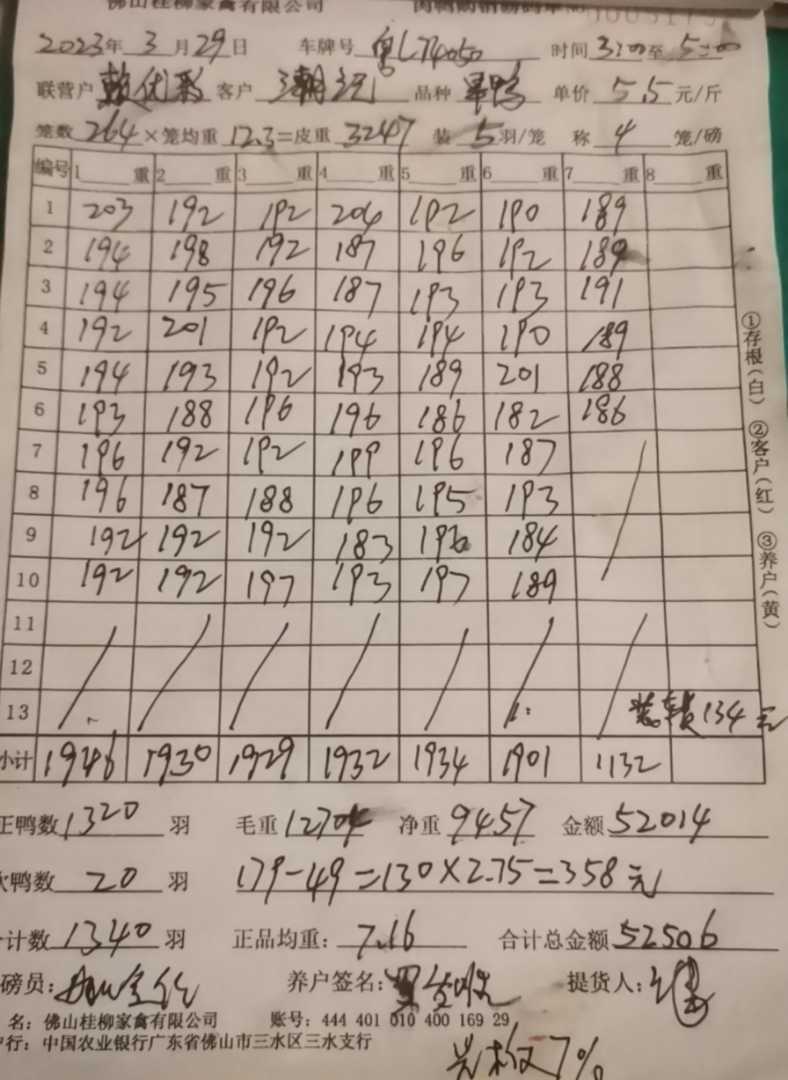 佛山桂柳家禽有限公司
2023年 3 月 29 日 车牌号 粤L74050 时间 3:00 至 5:00
联营户 客户 品种 单价 5.5 元/斤
笼数 264 × 笼均重 12.3 = 皮重 3247 装 5 羽/笼 称 4 笼/磅
编号 1 重 2 重 3 重 4 重 5 重 6 重 7 重 8 重
1 203 192 192 204 192 190 189
2 194 198 192 187 196 192 189
3 194 195 196 187 193 193 191
4 192 201 192 194 194 190 189
5 194 193 192 193 189 201 188
6 193 188 196 196 186 182 186
7 196 192 192 199 196 187
8 196 187 188 196 195 193
9 192 192 192 183 196 184
10 192 192 197 193 197 189
11
12
13 装车费134元
小计 1946 1930 1929 1932 1934 1901 1132
正鸭数 1320 羽 毛重 12704 净重 9457 金额 52014
次鸭数 20 羽 179-49=130×2.75=358元
合计数 1340 羽 正品均重: 7.16 合计总金额 52506
磅员: 养户签名: 提货人:
名: 佛山桂柳家禽有限公司 账号: 444 401 010 400 169 29
户行: 中国农业银行广东省佛山市三水区三水支行
7%
①存根(白) ②客户(红) ③养户(黄)